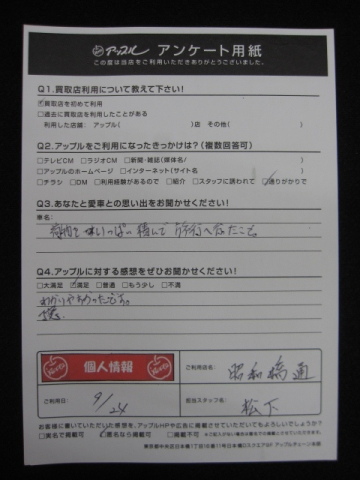 アップル アンケート用紙
この度は当店をご利用いただきありがとうございました。
Q1.買取店利用について教えて下さい!
☑買取店を初めて利用
□過去に買取店を利用したことがある
利用した店舗: アップル( )店 その他( )
Q2.アップルをご利用になったきっかけは?(複数回答可)
□テレビCM □ラジオCM □新聞・雑誌(媒体名/ )
□アップルのホームページ □インターネット(サイト名 )
□チラシ □DM □利用経験があるので □紹介 □スタッフに誘われて ☑通りがかりで
Q3.あなたと愛車との思い出をお聞かせください!
車名:
荷物をいっぱい積んで旅行へ行ったこと。
Q4.アップルに対する感想をぜひお聞かせください!
□大満足 ☑満足 □普通 □もう少し □不満
わかりやすかったです。
個人情報
ご利用店名: 昭和橋通
ご利用日: 9/24
担当スタッフ名: 松下
お客様に書いていただいた感想を、アップルHPや広告に掲載させていただいてもよろしいでしょうか?
□実名で掲載可 ☑匿名なら掲載可 □掲載不可